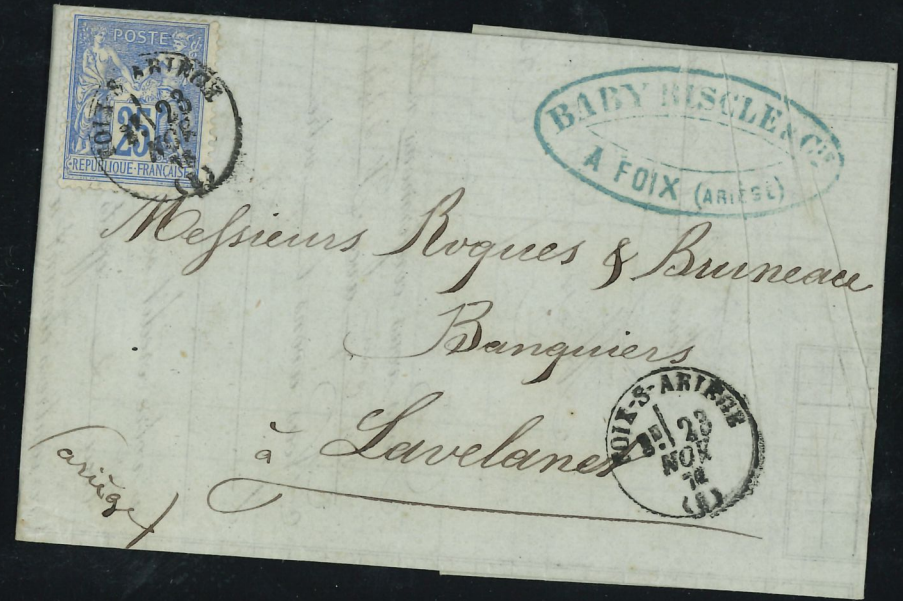 POSTE
25
REPUBLIQUE FRANÇAISE
FOIX-S-ARIEGE
23
NOV
(1)
BABY RISCLE & Cie
A FOIX (ARIÈGE)
Messieurs Roques & Bruneau
Banquiers
à Lavelanet
FOIX-S-ARIEGE
23
NOV
(1)
(ariège)